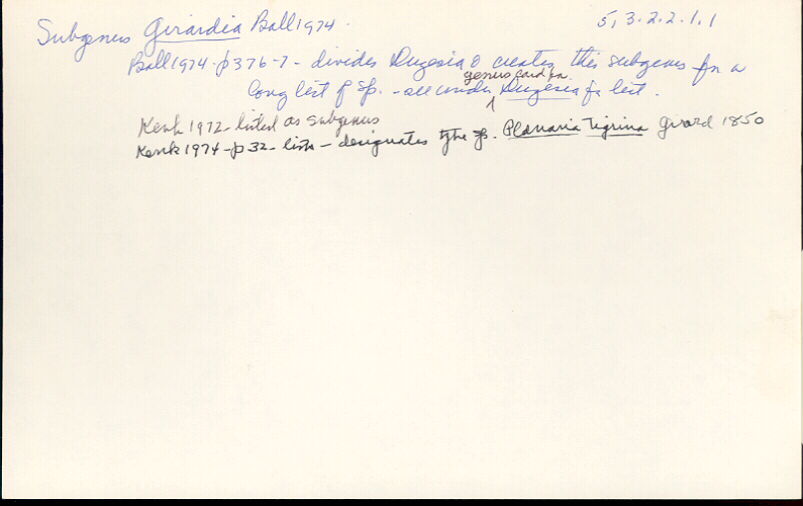 Subgenus Girardia Ball 1974. 5, 3.2.2.1.1
Ball 1974-p376-7- divides Dugesia & creates this subgenus for a
genus card on
long list of sp. - see under Dugesia for list.
Kenk 1972- listed as subgenus
Kenk 1974-p 32- lists - designates type sp. Planaria tigrina Girard 1850